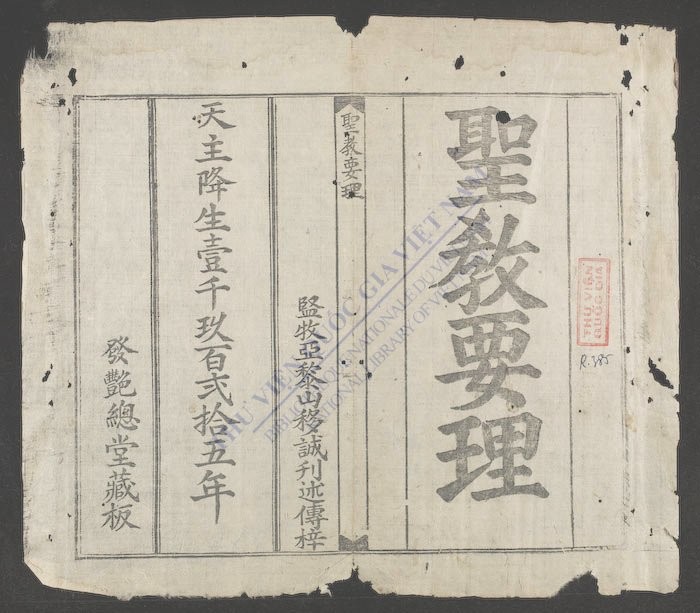 聖教要理
聖教要理
監牧亞黎山移誠刋述傳梓
天主降生壹千玖百弍拾五年
發艷總堂藏板
THƯ VIỆN
QUỐC GIA
R.385
THƯ VIỆN QUỐC GIA VIỆT NAM
BIBLIOTHÈQUE NATIONALE DU VIETNAM
NATIONAL LIBRARY OF VIETNAM